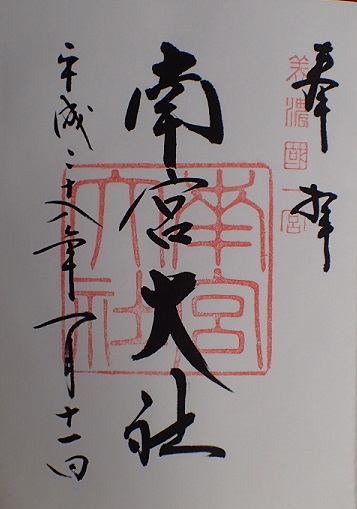 奉拝
美濃國一宮
南宮大社
南宮大社
平成二十八年一月十一日